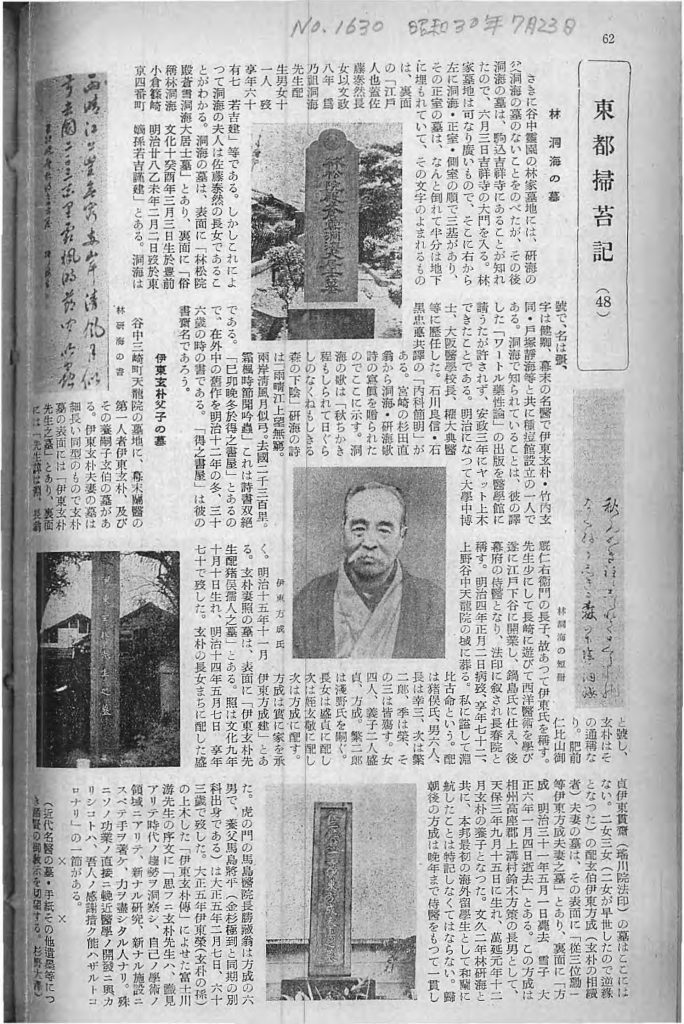 No. 1630 昭和30年7月23日
62
東都掃苔記
(48)
林洞海の墓
さきに谷中霊園の林家墓地には、研海の
父洞海の墓のないことをのべたが、その後
洞海の墓は、駒込吉祥寺にあることが知れ
たので、六月三日吉祥寺の大門を入る。林
家墓地は可なり廣いもので、そこに右から
左に洞海・正室・側室の順で三基があり、
その正室の墓は、なんと倒れて半分は地下
に埋もれていて、その文字のよまれるもの
は、裏面
の「江戸
人也蓋佐
藤泰然長
女以文政
八年 爲
乃嗣洞海
先生配
生男女十
一人 歿
享年六十
有七 若吉建」等である。しかしこれによ
つて洞海の夫人は佐藤泰然の長女であるこ
とがわかる。洞海の墓は、表面に「林松院
殿蒼雪洞海大居士墓」とあり、裏面に「俗
稱林洞海 文化十癸酉年三月三日生於豊前
小倉篠崎 明治廿八乙未年二月二日歿於東
京四番町 嫡孫若吉謹建」とある。洞海は
林研海の書
號で、名は彊、
字は健卿、幕末の名醫で伊東玄朴・竹内玄
同・戸塚靜海等と共に種痘館設立の一人で
ある。洞海で知られていることは、彼の譯
した「ワートル藥性論」の出版を醫學館に
請うたが許されず、安政三年にヤット上木
できたことである。明治になつて大學中博
士、大阪醫學校長、權大典醫
等に歴任した。石川良信・石
黒忠悳共譯の「内科簡明」が
ある。宮崎の杉田直
翁から洞海・研海歌
詩の寫眞を贈られた
のでここに示す。洞
海の歌は「秋ちかき
程もしられて日ぐら
しのなくねもしきる
森の下陰」研海の詩
は「雨晴江上望無窮。
兩岸清風月似弓。去國二千三百里。
霜楓時節聞吟蟲」これは詩書双絕
である。「巳卯晚冬於得之書屋」とあるの
で、在外中の舊作を明治十二年の冬、三十
六歳の時の書である。「得之書屋」は彼の
書齋名であろう。
伊東玄朴父子の墓
谷中三崎町天龍院の墓地に、幕末蘭醫の
第一人者伊東玄朴、及び
その養嗣子玄伯の墓があ
る。伊東玄朴夫妻の墓は
細長い同型のもので玄朴
墓の表面には「伊東玄朴
先生之墓」とあり、裏面
には「先生諱は淵、長翁
林洞海の短冊
と號し、
玄朴はそ
の通稱な
り。肥前
仁比山御
厩仁右衛門の長子、故あつて伊東氏を稱す。
先生少にして長崎に遊びて西洋醫術を學び
遂に江戸下谷に開業し、鍋島氏に仕え、後
幕府の侍醫となり、法印に叙され長春院と
稱す。明治四年正月二日病歿、享年七十二、
上野谷中天龍院の域に葬る。私に謚して淵
比古命という。配
は猪俣氏、男六人、
長は幸三、次は繁
二郎、季は榮、そ
の三は皆殤す。女
四人、義子二人盛
貞、方成。繁二郎
は淺野氏を嗣ぐ。
長女は盛貞に配し
次は姪玄敬に配し
次は方成に配す。
方成は實に家を承
伊東方成氏
く。明治十五年十一月 伊東方成建」とあ
る。玄朴妻照の墓は、表面に「伊東玄朴先
生配猪俣孺人之墓」とある。照は文化九年
十月十日生れ、明治十四年五月七日 享年
七十で歿した。玄朴の長女まちに配した盛
貞伊東貫齋（瑤川院法印）の墓はここには
ない。二女三女（二女が早世したので逆緣
となつた）の配玄伯伊東方成（玄朴の相續
者）夫妻の墓は、その表面に「從三位勳一
等伊東方成夫妻之墓」とあり、裏面に「方
成 明治三十一年五月一日薨去、雪子 大
正六年一月四日逝去」とある。この方成は
相州高座郡上溝村鈴木方策の長男として、
天保三年九月十五日に生れ、萬延元年十二
月玄朴の養子となつた。文久二年林研海と
共に、本邦最初の海外留學生として和蘭に
航したことは特記しなくてはならない。歸
朝後の方成は晩年まで侍醫をもつて一貫し
た。虎の門の馬島醫院長勝誠翁は方成の六
男で、養父馬島將平（金杉極到と同期の別
科出身である）は大正五年二月七日、六十
三歳で歿した。大正五年伊東榮（玄朴の孫）
の上木した「伊東玄朴傳」によせた富士川
游先生の序文に「思フニ玄朴先生ハ、識見
アリテ時代ノ趨勢ヲ洞察シ、自己ノ學術ノ
領域ニアリテ、新ナル研究、新ナル施設ニ
スベテ手ヲ著ケ、力ヲ盡シタル人ナリ。殊
ニソノ功業ノ直接ニ輓近醫學ノ開發ニ與カ
リシコトハ、吾人ノ感謝措ク能ハザルトコ
ロナリ」の一節がある。
×　×　×
（近代名醫の墓・手紙その他遺墨等につ
き諸賢の御教示を切望する。杉野大澤）